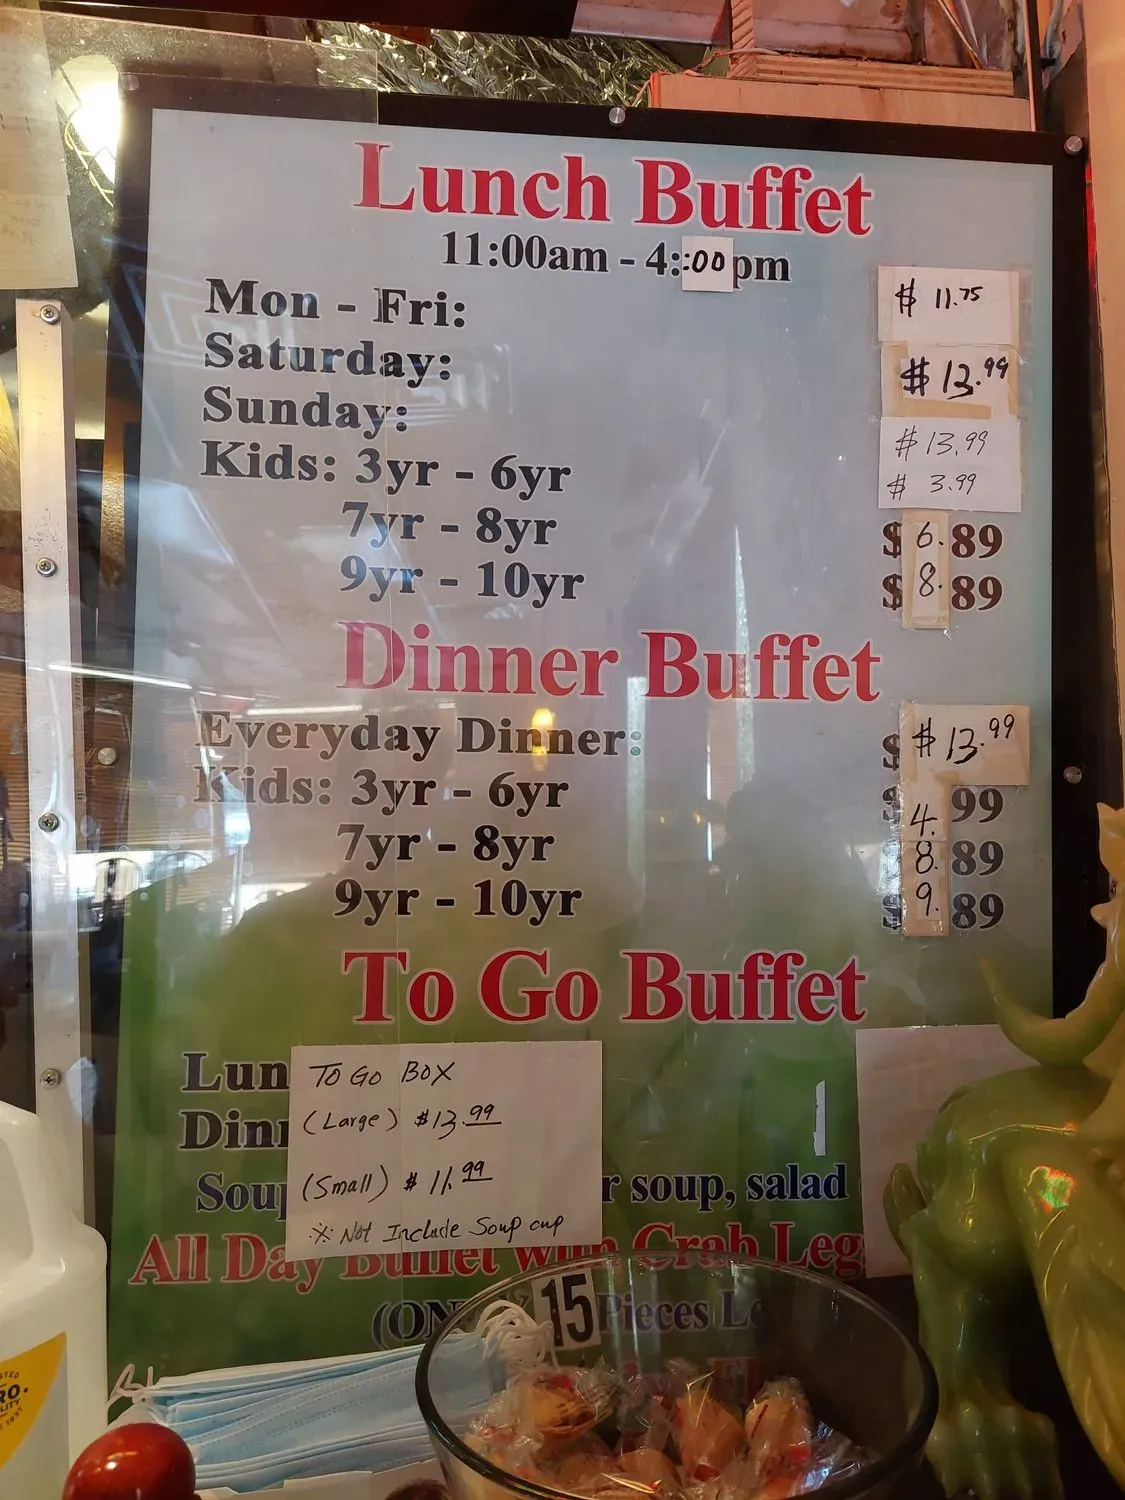 Lunch Buffet
11:00am - 4::00pm
Mon - Fri: $ 11.75
Saturday: $ 13.99
Sunday: $ 13.99
Kids: 3yr - 6yr $ 3.99
7yr - 8yr $ 6.89
9yr - 10yr $ 8.89
Dinner Buffet
Everyday Dinner: $ $ 13.99
Kids: 3yr - 6yr $ 4.99
7yr - 8yr $ 8.89
9yr - 10yr $ 9.89
To Go Buffet
TO GO BOX
(Large) $13.99
(Small) $ 11.99
※ Not Include Soup cup
soup, salad
All Day Buffet with Crab Legs
15 Pieces